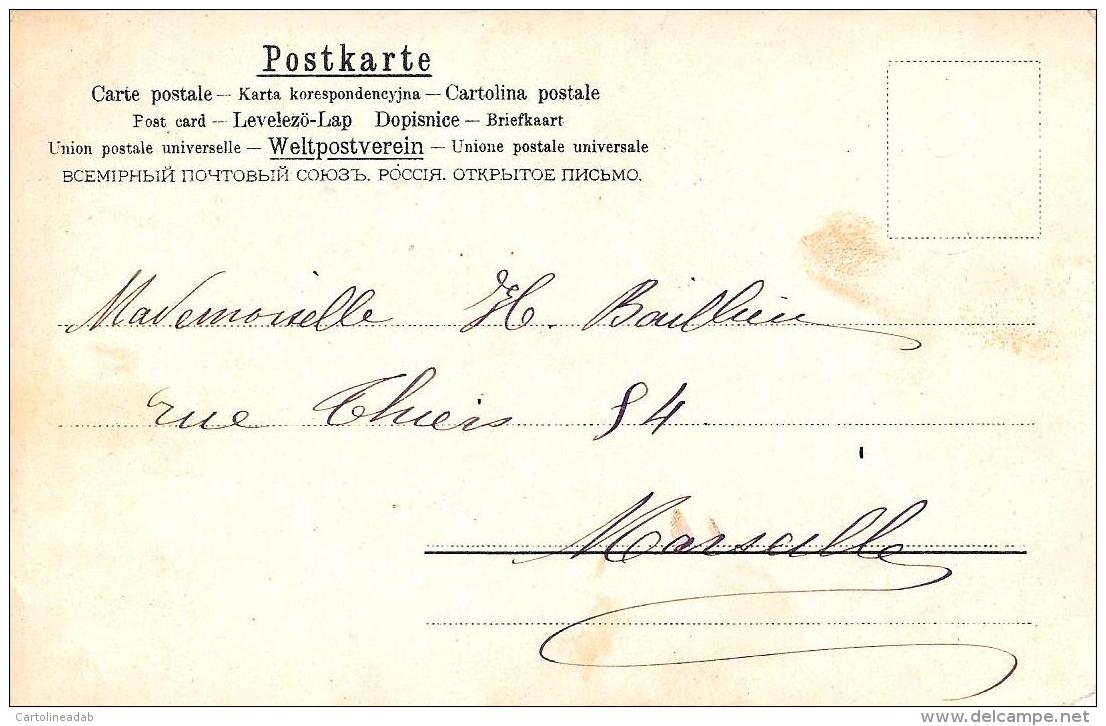 Postkarte
Carte postale — Karta korespondencyjna — Cartolina postale
Post card — Levelezö-Lap Dopisnice — Briefkaart
Union postale universelle — Weltpostverein — Unione postale universale
ВСЕМІРНЫЙ ПОЧТОВЫЙ СОЮЗЪ. РОССІЯ. ОТКРЫТОЕ ПИСЬМО.
Mademoiselle H. Baillieu
rue Thiers 54
Marseille
Cartolineadab
delcampe.net